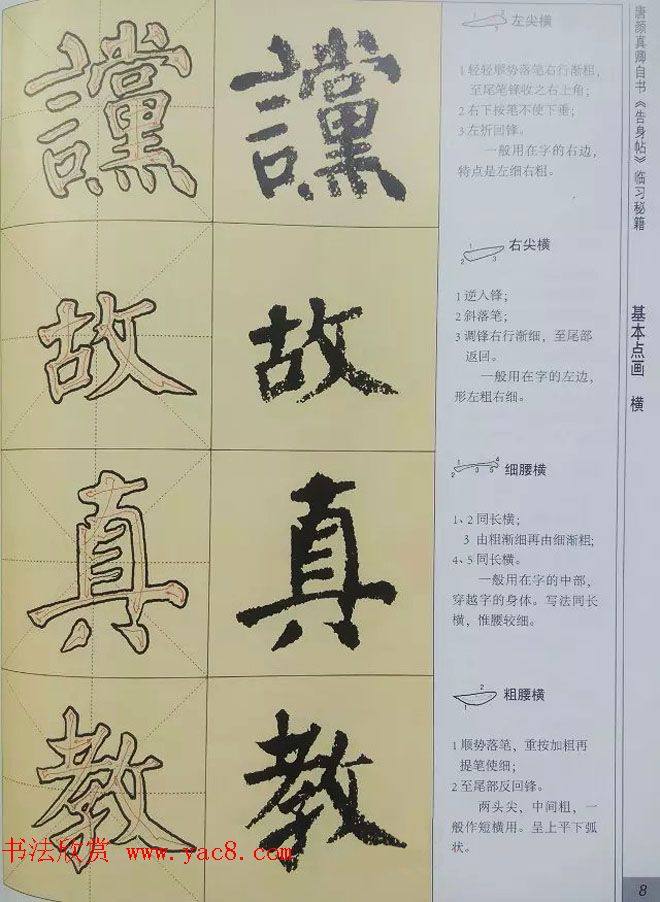 讜
左尖横
1 轻轻顺势落笔右行渐粗,
至尾笔锋收之右上角;
2 右下按笔不使下垂;
3 左折回锋。
一般用在字的右边,
特点是左细右粗。
故
右尖横
1 逆入锋;
2 斜落笔;
3 调锋右行渐细, 至尾部
返回。
一般用在字的左边,
形左粗右细。
真
细腰横
1、2 同长横;
3 由粗渐细再由细渐粗;
4、5 同长横。
一般用在字的中部,
穿越字的身体。写法同长
横, 惟腰较细。
教
粗腰横
1 顺势落笔, 重按加粗再
提笔使细;
2 至尾部反回锋。
两头尖, 中间粗, 一
般作短横用。呈上平下弧
状。
唐颜真卿自书《告身帖》临习秘籍
基本点画 横
8
书法欣赏 www.yac8.com